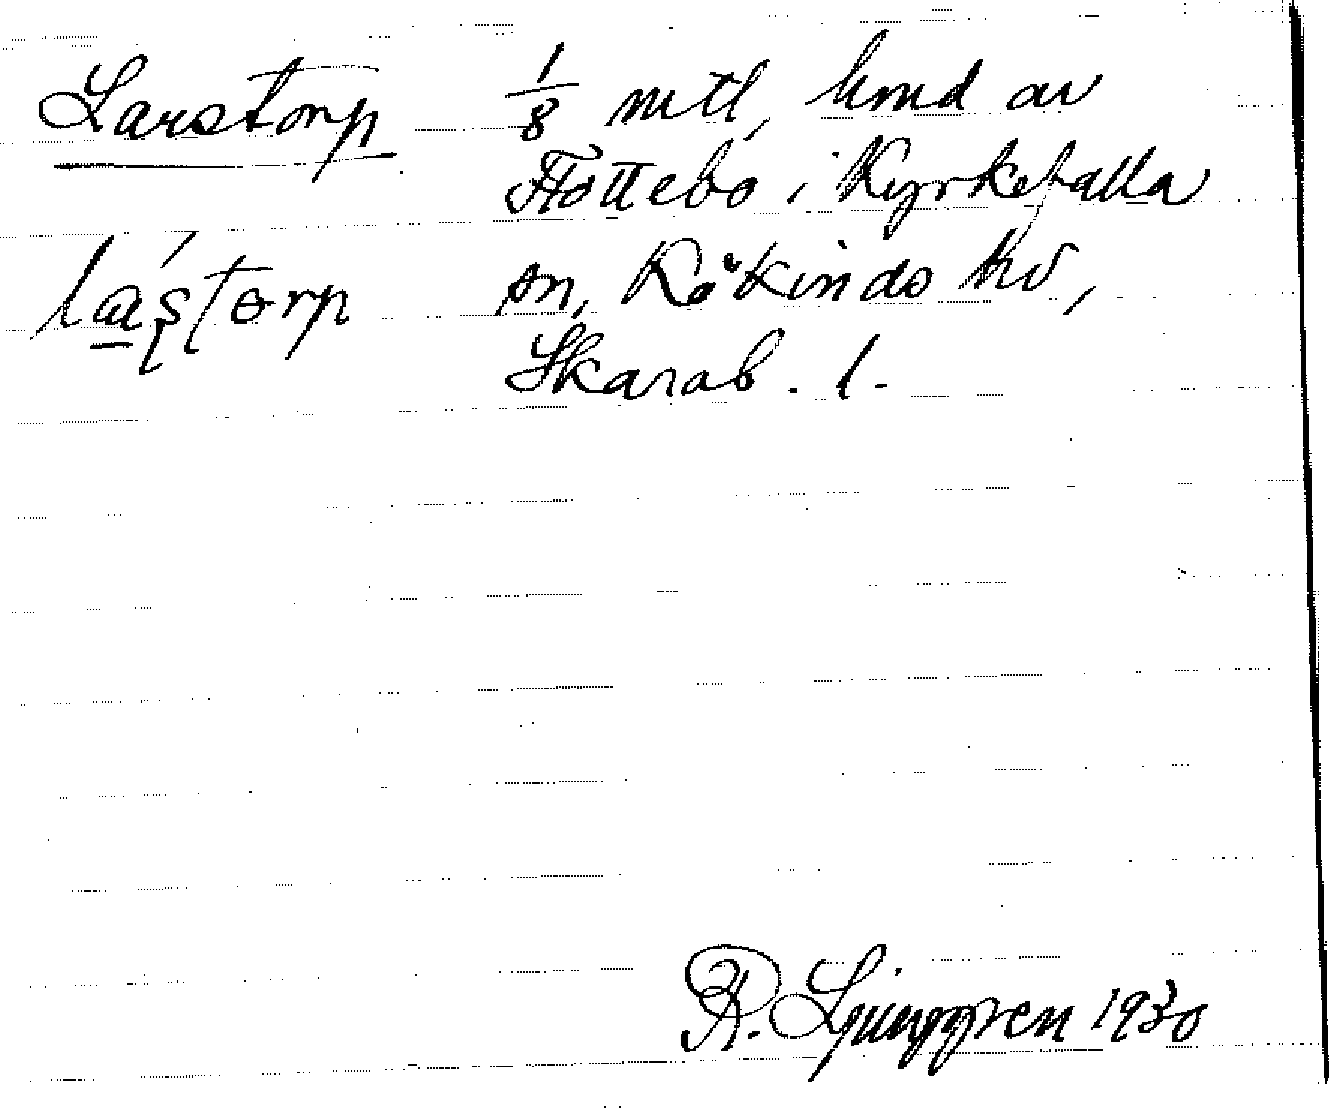 Larstorp 1/8 mtl, hmd av
Flottebo i Kyrkefalla
lastorp sn, Kåkinds hd,
Skarab. l.
R. Ljunggren 1930